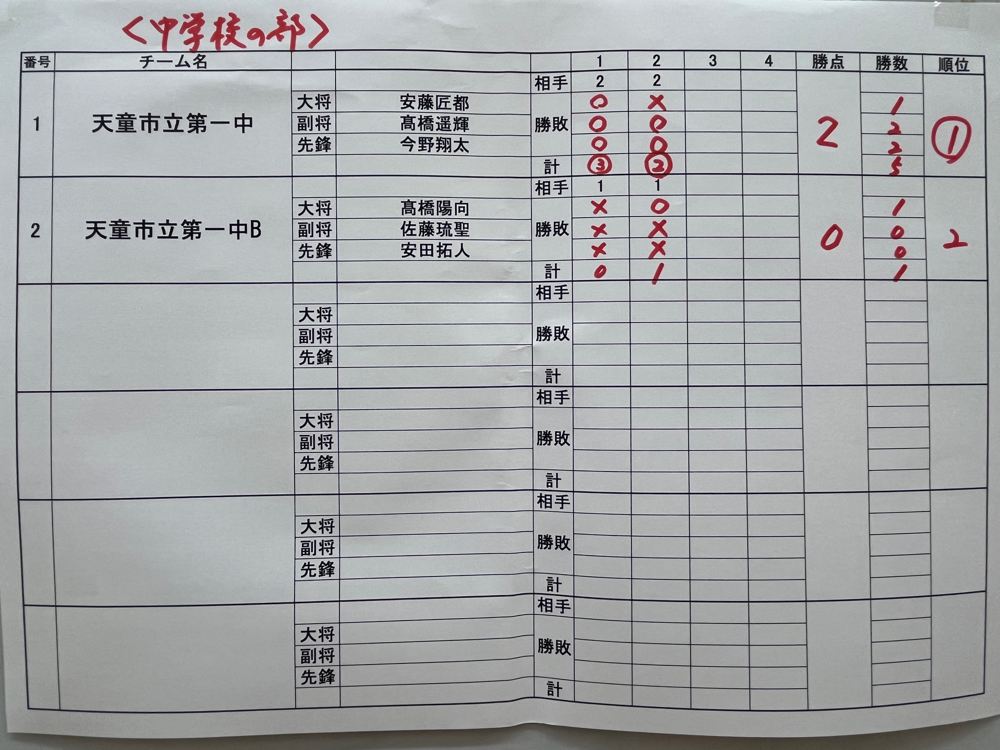 <中学校の部>
番号 チーム名 1 2 3 4 勝点 勝数 順位
相手 2 2
大将 安藤匠都 ○ × 1
1 天童市立第一中 副将 髙橋遥輝 勝敗 ○ ○ 2 2 ①
先鋒 今野翔太 ○ ○ 2
計 ③ ② 5
相手 1 1
大将 髙橋陽向 × ○ 1
2 天童市立第一中B 副将 佐藤琉聖 勝敗 × × 0 0 2
先鋒 安田拓人 × × 0
計 0 1 1
相手
大将
副将 勝敗
先鋒
計
相手
大将
副将 勝敗
先鋒
計
相手
大将
副将 勝敗
先鋒
計
相手
大将
副将 勝敗
先鋒
計